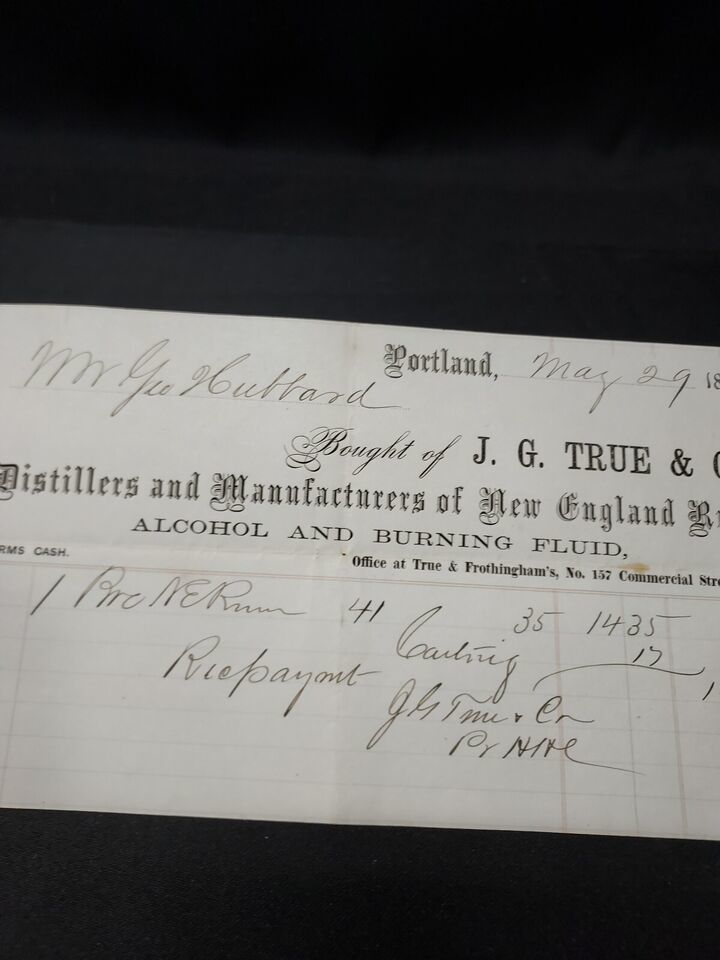 Portland, May 29 18
Mr Geo Hubbard
Bought of J. G. TRUE & C
Distillers and Manufacturers of New England Ru
ALCOHOL AND BURNING FLUID,
RMS CASH.
Office at True & Frothingham's, No. 157 Commercial Stre
1 Brc N E Rum 41 35 1435
Carting 17 1
Recpaymt
J G True & Co
Pr